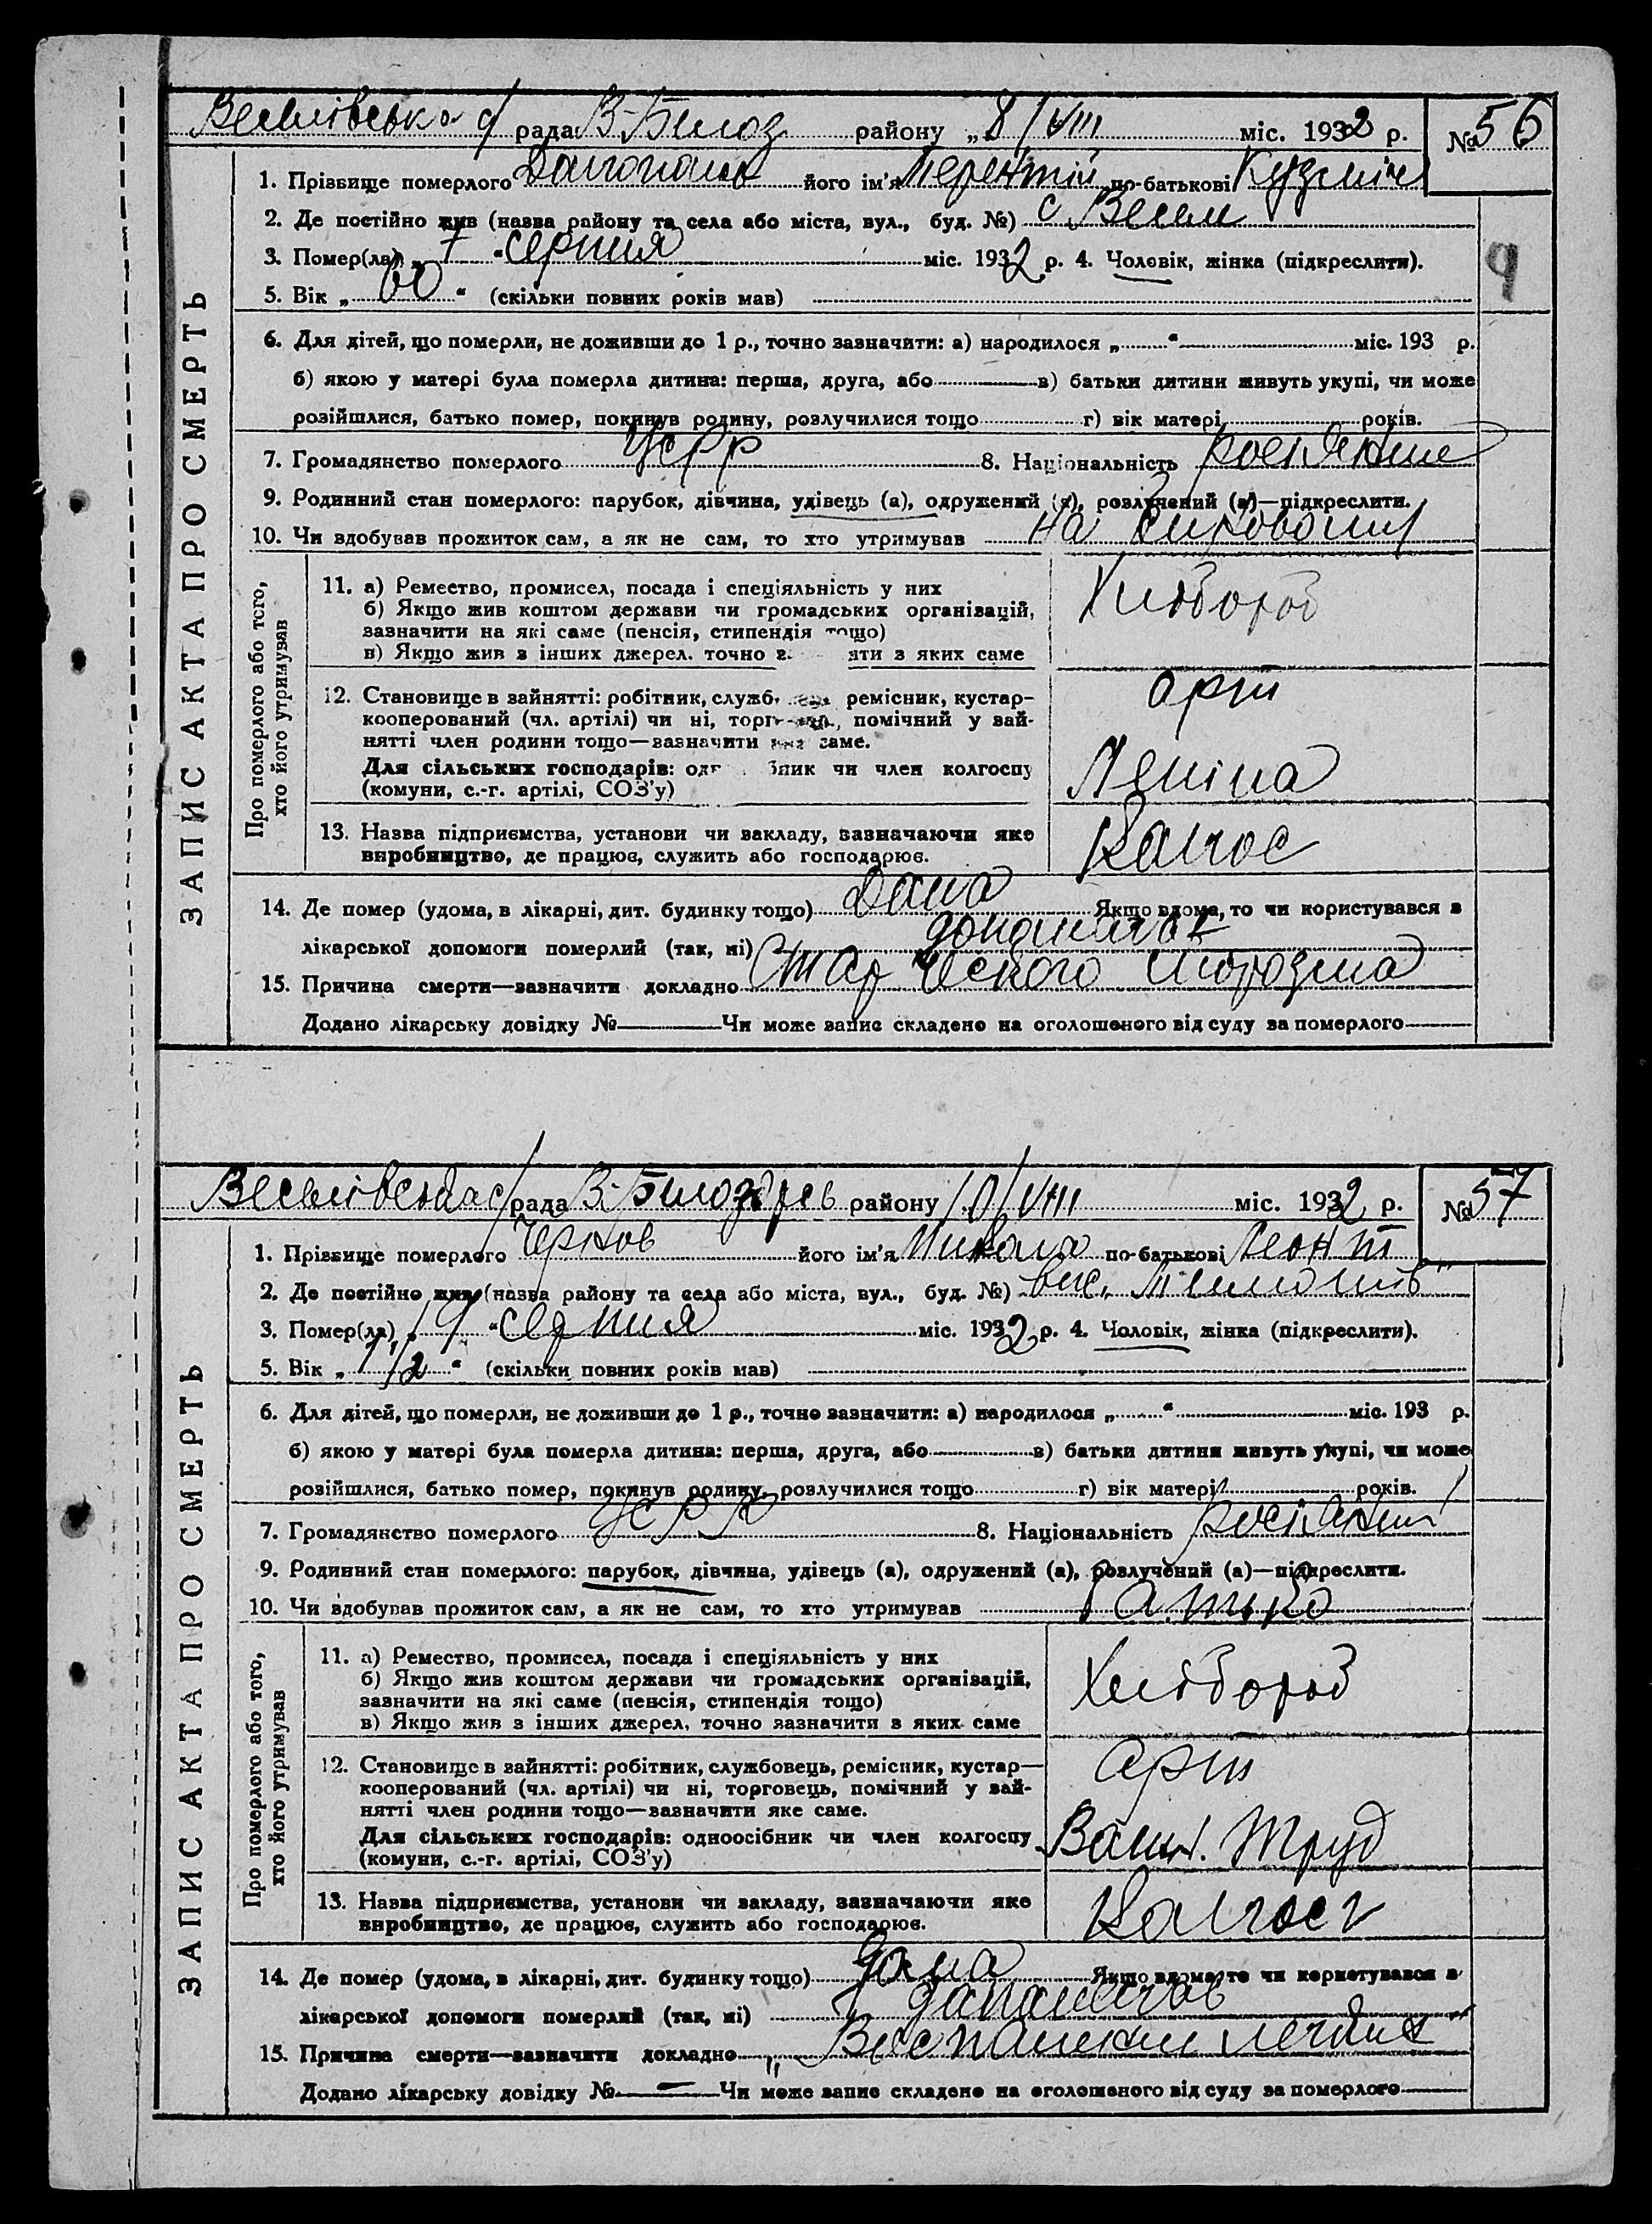 ЗАПИС АКТА ПРО СМЕРТЬ
рада В-Білоз району „8/VIII міс. 1932 р. № 56
1. Прізвище померлого його ім'я по-батькові Кузмич
2. Де постійно жив (назва району та села або міста, вул., буд. №) с.
3. Помер(ла) „7“ серпня міс. 1932 р. 4. Чоловік, жінка (підкреслити).
9
5. Вік „60“ (скільки повних років мав)
6. Для дітей, що померли, не доживши до 1 р., точно зазначити: а) народилося „ “ міс. 193 р.
б) якою у матері була померла дитина: перша, друга, або в) батьки дитини живуть укупі, чи може
розійшлися, батько помер, покинув родину, розлучилися тощо г) вік матері років.
7. Громадянство померлого УСРР 8. Національність росіянин
9. Родинний стан померлого: парубок, дівчина, удівець (а), одружений (а), розлучений (а)—підкреслити.
10. Чи здобував прожиток сам, а як не сам, то хто утримував на
Про померлого або того, хто його утримував
11. а) Ремество, промисел, посада і спеціяльність у них
б) Якщо жив коштом держави чи громадських організацій,
зазначити на які саме (пенсія, стипендія тощо)
в) Якщо жив з інших джерел, точно з яких саме
Хлібороб
12. Становище в зайнятті: робітник, служб ремісник, кустар-
кооперований (чл. артілі) чи ні, торг помічний у зай-
нятті член родини тощо—зазначити саме.
Для сільських господарів: чи член колгоспу
(комуни, с.-г. артілі, СОЗ'у)
арт
Леніна
13. Назва підприємства, установи чи закладу, зазначаючи яке
виробництво, де працює, служить або господарює.
Колгос
14. Де помер (удома, в лікарні, дит. будинку тощо) Дома Якщо вдома, то чи користувався з
лікарської допомоги померлий (так, ні)
15. Причина смерти—зазначити докладно
Додано лікарську довідку № Чи може запис складено на оголошеного від суду за померлого
ЗАПИС АКТА ПРО СМЕРТЬ
рада В-Білозірсь району 10/VIII міс. 1932 р. № 57
1. Прізвище померлого Чернов його ім'я Микола по-батькові Леонт
2. Де постійно жив (назва району та села або міста, вул., буд. №)
3. Помер(ла) „9“ серпня міс. 1932 р. 4. Чоловік, жінка (підкреслити).
5. Вік „1 1/2“ (скільки повних років мав)
6. Для дітей, що померли, не доживши до 1 р., точно зазначити: а) народилося „ “ міс. 193 р.
б) якою у матері була померла дитина: перша, друга, або в) батьки дитини живуть укупі, чи може
розійшлися, батько помер, покинув родину, розлучилися тощо г) вік матері років.
7. Громадянство померлого УСРР 8. Національність росіянин
9. Родинний стан померлого: парубок, дівчина, удівець (а), одружений (а), розлучений (а)—підкреслити.
10. Чи здобував прожиток сам, а як не сам, то хто утримував батько
Про померлого або того, хто його утримував
11. а) Ремество, промисел, посада і спеціяльність у них
б) Якщо жив коштом держави чи громадських організацій,
зазначити на які саме (пенсія, стипендія тощо)
в) Якщо жив з інших джерел, точно зазначити з яких саме
Хлібороб
12. Становище в зайнятті: робітник, службовець, ремісник, кустар—
кооперований (чл. артілі) чи ні, торговець, помічний у зай-
нятті член родини тощо—зазначити яке саме.
Для сільських господарів: одноосібник чи член колгоспу
(комуни, с.-г. артілі, СОЗ'у)
арт
Труд
13. Назва підприємства, установи чи закладу, зазначаючи яке
виробництво, де працює, служить або господарює.
Колгосп
14. Де помер (удома, в лікарні, дит. будинку тощо) дома Якщо вдома, то чи користувався з
лікарської допомоги померлий (так, ні)
15. Причина смерти—зазначити докладно
Додано лікарську довідку № — Чи може запис складено на оголошеного від суду за померлого